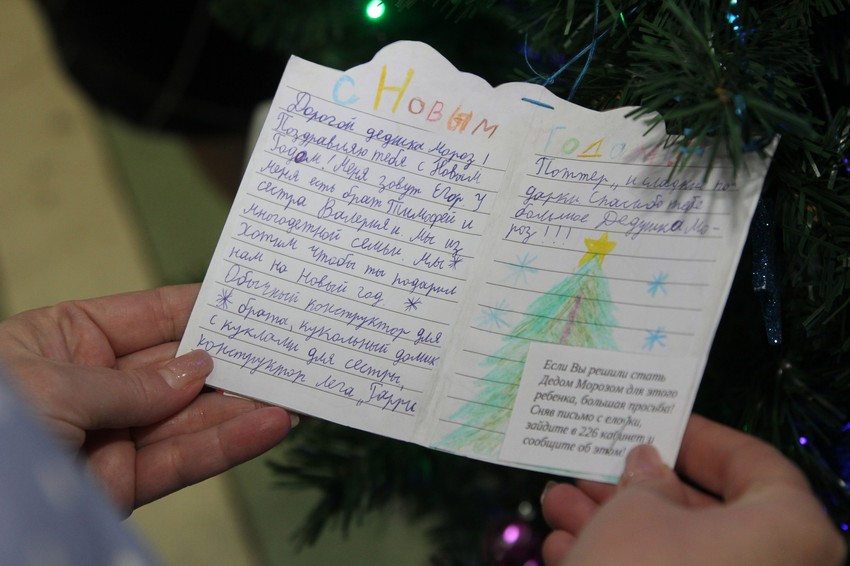 с Новым
Дорогой дедушка мороз!
Поздравляю тебя с Новым
Годом! Меня зовут Егор у
меня есть брат Тимофей и
сестра Валерия и. Мы из
многодетной семьи мы
хотим чтобы ты подарил
нам на Новый год
Обычный конструктор для
брата, кукольный домик
с куклами для сестры,
конструктор лега „Гарри
Годом
Поттер„ и сладкие по-
дарки спасибо тебе
большое Дедушка мо-
роз!!!
Если Вы решили стать
Дедом Морозом для этого
ребенка, большая просьба!
Сняв письмо с елочки,
зайдите в 226 кабинет и
сообщите об этом!